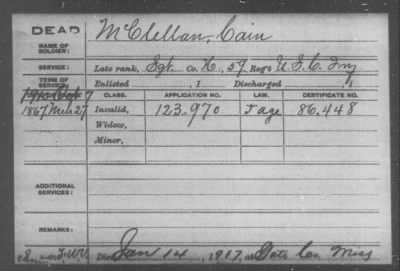 DEAD
NAME OF SOLDIER: McClellan, Cain
SERVICE: Late rank, Sgt. Co. K., 59 Reg't U.S.C. Inf
TERM OF SERVICE: Enlisted , 1 Discharged , 1
CLASS. APPLICATION NO. LAW. CERTIFICATE NO.
1867 Mch 27 Invalid, 123.970 J age 86.448
Widow,
Minor,
ADDITIONAL SERVICES:
REMARKS:
Died Jan 14, 1917, at Co. Miss